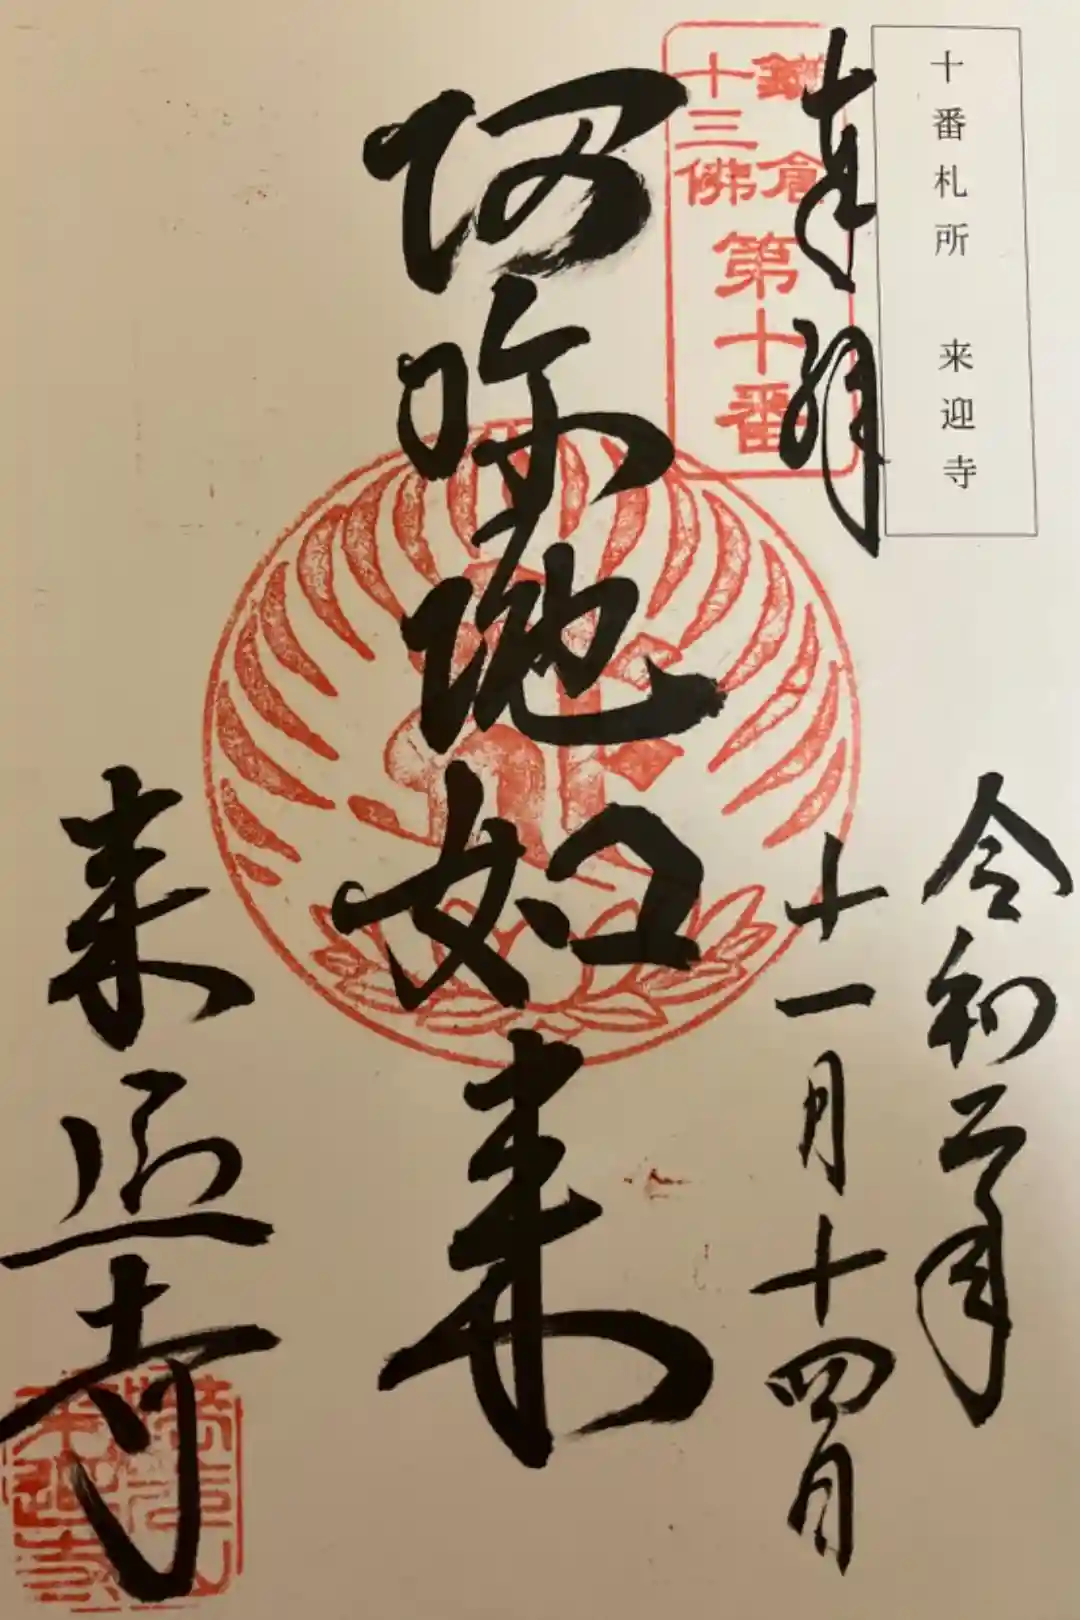 十番札所 来迎寺
奉拝
鎌倉
十三佛
第十番
令和二年
十一月十四日
阿弥陀如来
来迎寺
来迎寺